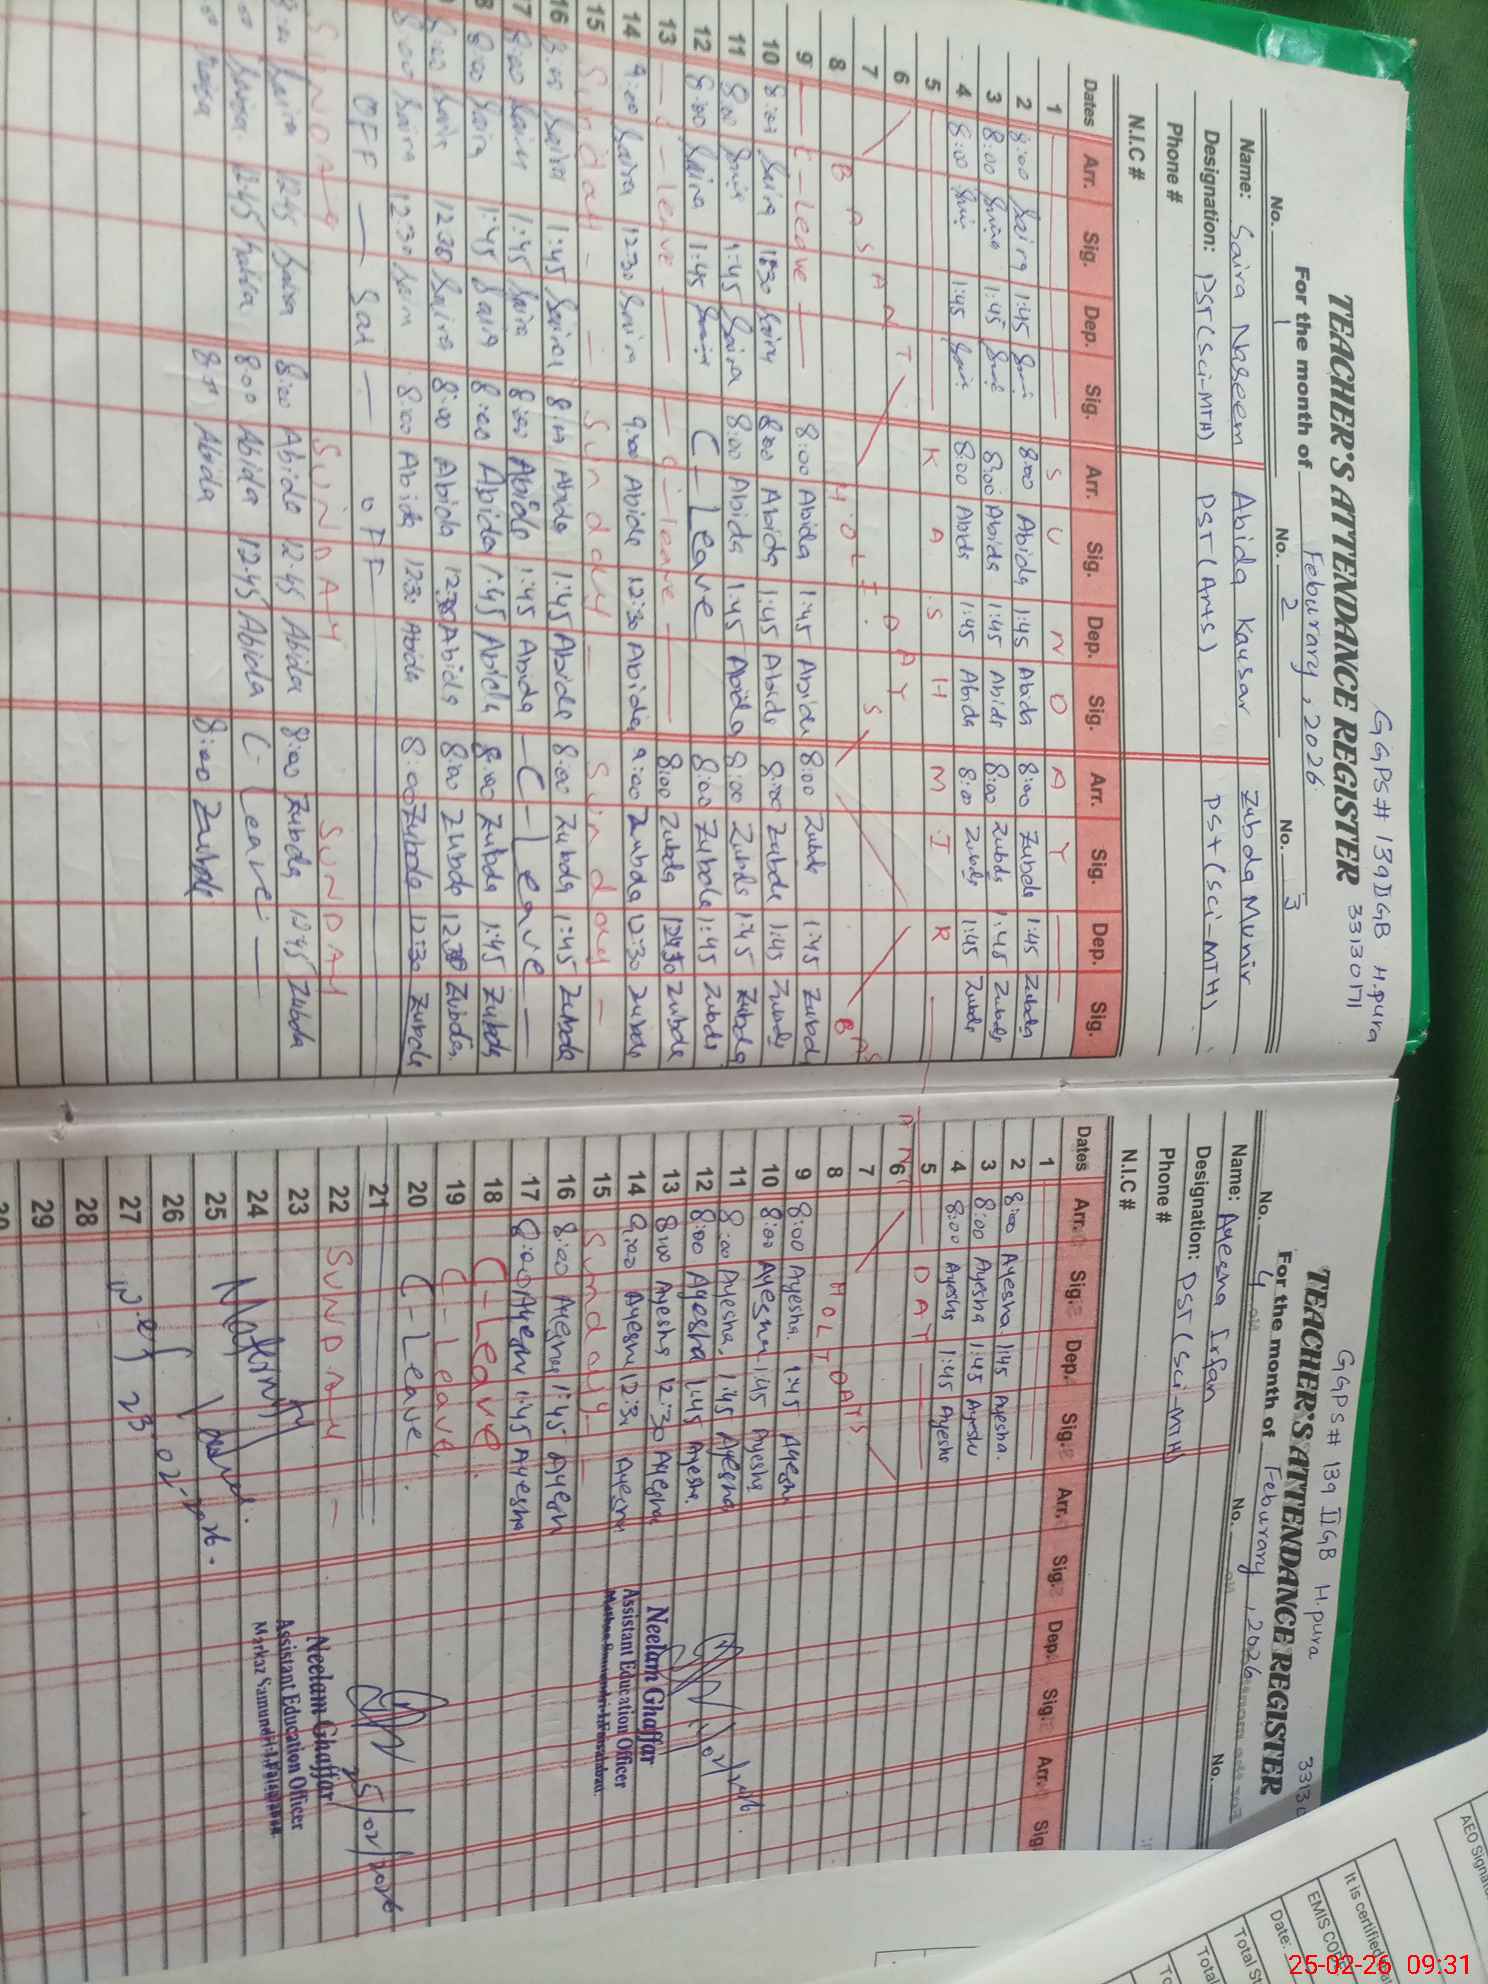 GGPS# 139 II GB H.pura
33130171
TEACHER'S ATTENDANCE REGISTER
For the month of Feburary, 2026
No. 1 No. 2 No. 3
Name: Saira Naseem Abida Kausar Zubda Munir
Designation: PST (Sci-MTH) PST (Arts) PST (Sci-MTH)
Phone #
N.I.C #
Dates Arr. Sig. Dep. Sig. Arr. Sig. Dep. Sig. Arr. Sig. Dep. Sig.
1 SUNDAY
2 8:00 Saira 1:45 8:00 Abida 1:45 Abida 8:00 Zubda 1:45 Zubda
3 8:00 1:45 8:00 Abida 1:45 Abida 8:00 Zubda 1:45 Zubda
4 8:00 1:45 8:00 Abida 1:45 Abida 8:00 Zubda 1:45 Zubda
5 KASHMIR
6
7 BASANT HOLIDAYS
8 BAS
9 C-Leave 8:00 Abida 1:45 Abida 8:00 Zubda 1:45 Zubda
10 8:00 Saira Saira 8:00 Abida 1:45 Abida 8:00 Zubda 1:45 Zubda
11 8:00 Saira 1:45 Saira 8:00 Abida 1:45 Abida 8:00 Zubda 1:45 Zubda
12 8:00 Saira 1:45 Saira C-Leave 8:00 Zubda 1:45 Zubda
13 -leave -leave 8:00 Zubda 12:30 Zubda
14 9:00 Saira 12:30 Saira 9:00 Abida 12:30 Abida 9:00 Zubda 12:30 Zubda
15 Sunday - Sunday - Sunday -
16 8:00 Saira 1:45 Saira 8:00 Abida 1:45 Abida 8:00 Zubda 1:45 Zubda
17 8:00 Saira 1:45 Saira 8:00 Abida 1:45 Abida - C-Leave -
8:00 Saira 1:45 Saira 8:00 Abida 1:45 Abida 8:00 Zubda 1:45 Zubda
8:00 Saira 12:30 Saira 8:00 Abida 12:30 Abida 8:00 Zubda 12:30 Zubda
8:00 Saira 12:30 Saira 8:00 Abida 12:30 Abida 8:00 Zubda 12:30 Zubda
OFF - Sat - OFF
SUNDAY SUNDAY SUNDAY
8:00 Saira 12:45 Saira 8:00 Abida 12:45 Abida 8:00 Zubda 12:45 Zubda
Saira 12:45 Saira 8:00 Abida 12:45 Abida C-Leave -
Saira Abida 8:00 Zubda
GGPS# 139 II GB H.pura
3313
TEACHER'S ATTENDANCE REGISTER
For the month of Feburary, 2026
No. 4 No. No.
Name: Ayesha Irfan
Designation: PST (Sci-MTH)
Phone #
N.I.C #
Dates Arr. Sig. Dep. Sig. Arr. Sig. Dep. Sig. Arr. Sig
1
2 8:00 Ayesha 1:45 Ayesha
3 8:00 Ayesha 1:45 Ayesha
4 8:00 Ayesha 1:45 Ayesha
5 DAY
6 ANT
7 HOLIDAYS
8
9 8:00 Ayesha 1:45 Ayesha
10 8:00 Ayesha 1:45 Ayesha
11 8:00 Ayesha 1:45 Ayesha
12 8:00 Ayesha 1:45 Ayesha
13 8:00 Ayesha 12:30 Ayesha
14 9:00 Ayesha Ayesha
15 Sunday -
16 8:00 Ayesha 1:45 Ayesha
17 8:00 Ayesha 1:45 Ayesha
18 C-Leave.
19 C-Leave
20 C-Leave.
21
22 SUNDAY -
23
24
25
26
27
28
29
30
Neelam Ghaffar
Assistant Education Officer
25/02/2026
Neelam Ghaffar
Assistant Education Officer
Markaz Samundri-I, Faisalabad
AEO Signatu
It is certified
EMIS CODE
Date:
Total St
Total
25-02-26 09:31